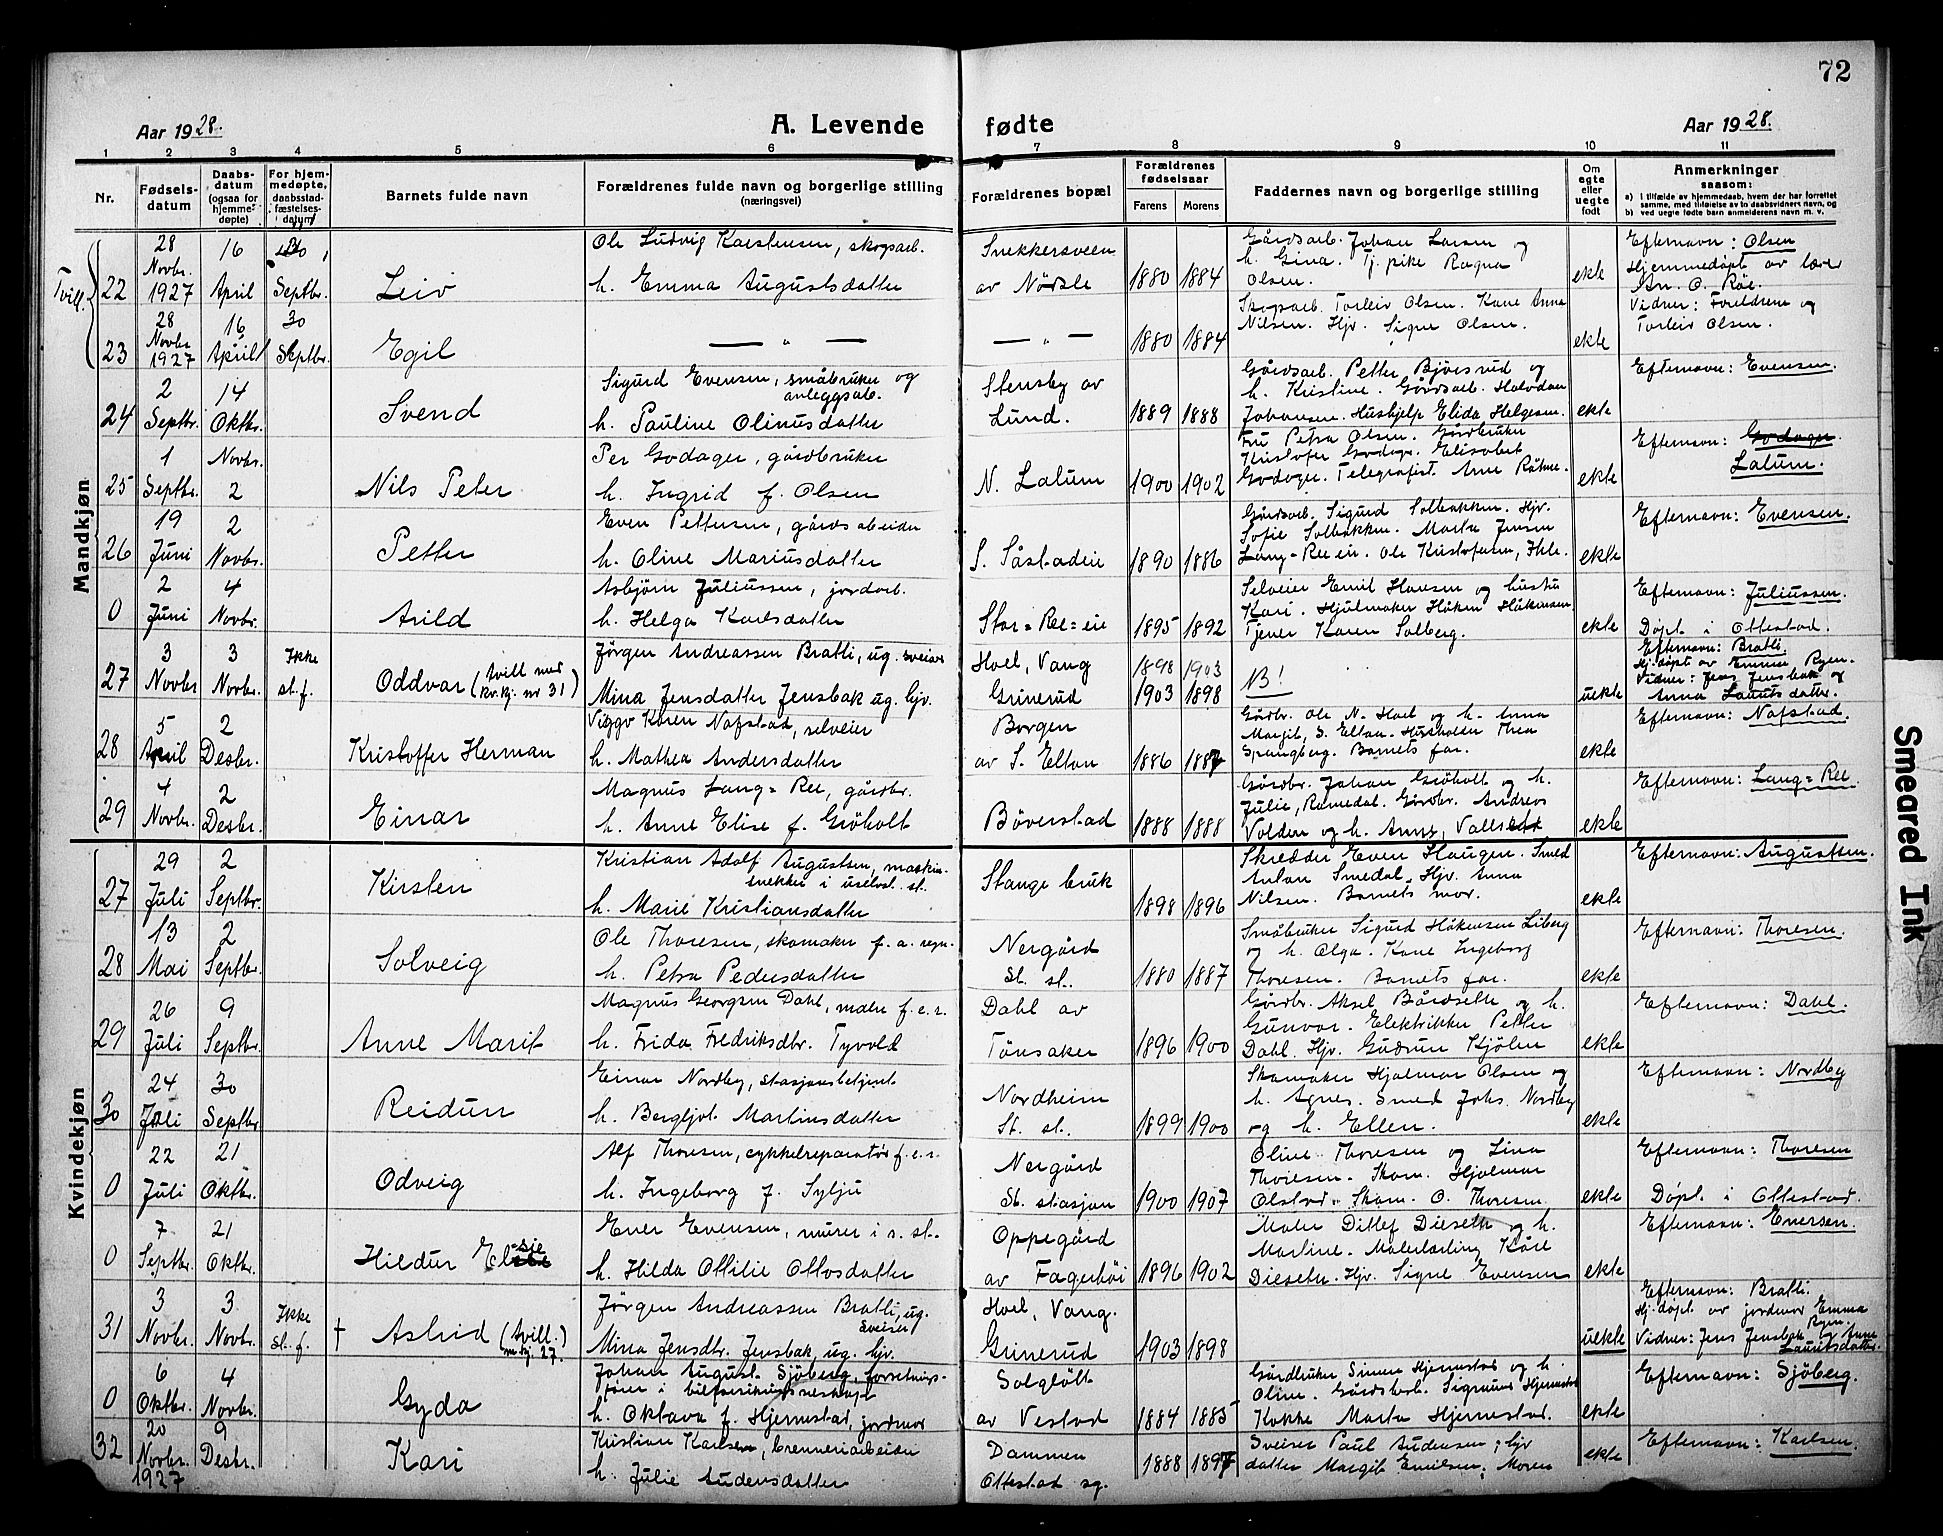 72
Aar 1928.
A. Levende fødte
Aar 1928.
1 2 3 4 5 6 7 8 9 10 11
Nr.
Fødsels-
datum
Daabs-
datum
(ogsaa for
hjemme-
døpte)
For hjem-
medøpte,
daabsstad-
fæstelses-
datum
Barnets fulde navn
Forældrenes fulde navn og borgerlige stilling
(næringsvei)
Forældrenes bopæl
Forældrenes
fødselsaar
Farens Morens
Faddernes navn og borgerlige stilling
Om
egte
eller
uegte
født
Anmerkninger
saasom:
a) i tilfælde av hjemmedaab, hvem der har forrettet
samme, med tilføielse av to daabsvidners navn, og
b) ved uegte fødte barn anmelderens navn m. v.
Mandkjøn
Tvill.
22
28
Novbr.
1927
16
April
30
Septbr.
Leiv
Ole Ludvig Karstensen, skogsarb.
h. Emma Augustsdatter
Snekkersveen
av Nørdsle
1880 1884
Gårdsarb. Johan Larsen og
h. Gina. Tj. pike Ragna
Olsen.
ekte
Efternavn: Olsen
Hjemmedøpt av lærer
An. O. Røe.
23
28
Novbr
1927
16
April
30
Septbr.
Egil
— " —
— " —
1880 1884
Skogsarb. Torleiv Olsen. Kone Anna
Nilsen. Hjv. Signe Olsen.
ekte
Vidner: Foreldrene og
Torleiv Olsen.
24
2
Septbr.
14
Oktbr.
Svend
Sigurd Evensen, småbruker og
anleggsarb.
h. Pauline Olinusdatter
Stensby av
Lund.
1889 1888
Gårdsarb. Petter Bjørsrud og
h. Kristine. Gårdsarb. Halvdan
Johansen. Hushjelp Elida Helgesen.
ekte
Efternavn: Evensen.
25
1
Septbr.
Novbr.
2
Nils Peter
Per Godager, gårdbruker
h. Ingrid f. Olsen
N. Lalum
1900 1902
Fru Petra Olsen. Gårdbruker
Kristofer Godager. Elisabet
Godager. Telegrafist. Arne Råhne.
ekte
Efternavn: Godager
Lalum.
26
19
Juni
2
Novbr.
Petter
Even Pettersen, gårdsarbeider
h. Oline Mariusdatter
S. Såstadeie
1890 1886
Gårdsarb. Sigurd Solbakken. Hjv.
Sofie Solbakken. Marta Jensen
Lang-Ree eie. Ole Kristofersen, Ihle.
ekte
Efternavn: Evensen.
0
2
Juni
4
Novbr.
Arild
Asbjørn Juliussen, jordarb.
h. Helga Karlsdatter
Stor=Ree=eie
1895 1892
Selveier Emil Hansen og hustru
Kari. Hjulmaker Håken Håkensen
Tjener Karen Solberg.
ekte
Efternavn: Juliussen.
Døpt i Ottestad.
27
3
Novbr
3
Novbr.
Ikke
st. f.
Oddvar (tvill. med
kv.kj. nr 31)
Jørgen Andreassen Bratli, ug. sveiser
Mina Jensdatter Jensbak ug. hjv.
Hoel, Vang
Grinerud
1898 1903
1903 1898
NB!
uekte
Efternavn: Bratli.
Hj.døpt av Emma Ryen.
Vidner: Jens Jensbak og
Anna Lauritsdatter.
28
5
April
2
Desbr.
Kristoffer Herman
Viggo Karen Nafstad, selveier
h. Mathea Andersdatter
Borgen
av S. Elton
1886 1887
Gårdbr. Ole N. Hoel og h. Anna
Margit, S. Elton. Husholder Thea
Spangberg. Barnets far.
ekte
Efternavn: Nafstad.
29
4
Novbr.
2
Desbr.
Einar
Magnus Lang=Ree, gårdbr.
h. Anne Elise f. Grøholt
Bøverstad
1888 1888
Gårdbr. Johan Grøholt og h.
Julie, Romedal. Gårdbr. Andreas
Volden og h. Anne, Vallset
ekte
Efternavn: Lang=Ree.
Kvindekjøn
27
29
Juli
2
Septbr.
Kirsten
Kristian Adolf Augustsen, maskin-
snekker i uselvst. st.
h. Marie Kristiansdatter
Stange bruk
1898 1896
Skredder Even Haugen. Smed
Anton Smedal. Hjv. Anna
Nilsen. Barnets mor.
ekte
Efternavn: Augustsen.
28
13
Mai
2
Septbr.
Solveig
Ole Thoresen, skomaker f. e. regn.
h. Petra Pedersdatter
Nergård
St. st.
1880 1887
Småbruker Sigurd Håkensen Liberg
og h. Olga. Kone Ingeborg
Thoresen. Barnets far.
ekte
Efternavn: Thoresen.
29
26
Juli
9
Septbr.
Anne Marit
Magnus Georgsen Dahl, maler f. e. r.
h. Frida Fredriksdtr. Tyvold
Dahl av
Tønsaker
1896 1900
Gårdbr. Aksel Bårdseth og h.
Gunvor. Elektriker Petter
Dahl. Hjv. Gudrun Kjølen
ekte
Efternavn: Dahl.
30
24
Juli
30
Septbr
Reidun
Einar Nordby, stasjonsbetjent
h. Bergljot Martinsdatter
Nordheim
St. st.
1899 1900
Skomaker Hjalmar Olsen og
h. Agnes. Smed Johs. Nordby
og h. Ellen.
ekte
Efternavn: Nordby
0
22
Juli
21
Oktbr.
Odveig
Alf Thoresen, cykkelreparatør f. e. r.
h. Ingeborg f. Sylju
Nergård
St. stasjon
1900 1907
Oline Thoresen og Lina
Thoresen. Skom. Hjalmar
Olstad. Skom. O. Thoresen.
ekte
Efternavn: Thoresen
Døpt i Ottestad.
0
7
Septbr.
21
Oktbr.
Hildur Elsie
Ever Evensen, murer i s. st.
h. Hilda Ottilie Ottosdatter
Oppegård
av Fagerhøi
1896 1902
Maler Ditlef Dieseth og h.
Martine. Malerlærling Kåre
Dieseth. Hjv. Signe Evensen
ekte
Efternavn: Eversen.
31
3
Novbr.
3
Novbr.
Ikke
st. f.
† Astrid (tvill.)
m.kj. 27.
Jørgen Andreassen Bratli, ug.
sveiser
Mina Jensdtr. Jensbak, ug. hjv.
Hoel, Vang.
Grinerud
1903 1898
uekte
Efternavn: Bratli.
Hj.døpt av jordmor Emma
Ryen.
Vidner: Jens Jensbak og Anne
Lauritsdatter.
0
6
Oktbr.
4
Novbr.
Gyda
Johan August Sjöberg, forretnings-
fører i bilforsikringsselskapet
h. Oktava f. Hjernestad, jordmor
Solgløtt
av Vestad
1884 1885
Gårdbruker Simen Hjernestad og h.
Oline. Gårdbest. Sigmund Hjernestad
Kokke Marta Hjernestad.
ekte
Efternavn: Sjöberg.
32
20
Novbr.
1927
9
Desbr.
Kari
Kristian Karlsen, brenneriarbeider
h. Julie Andersdatter
Dammen
Ottestad sg.
1888 1897
Sveiser Paul Andersen; hjv
datter Margit Emilsen; Moren
ekte
Efternavn: Karlsen.
Smeared Ink